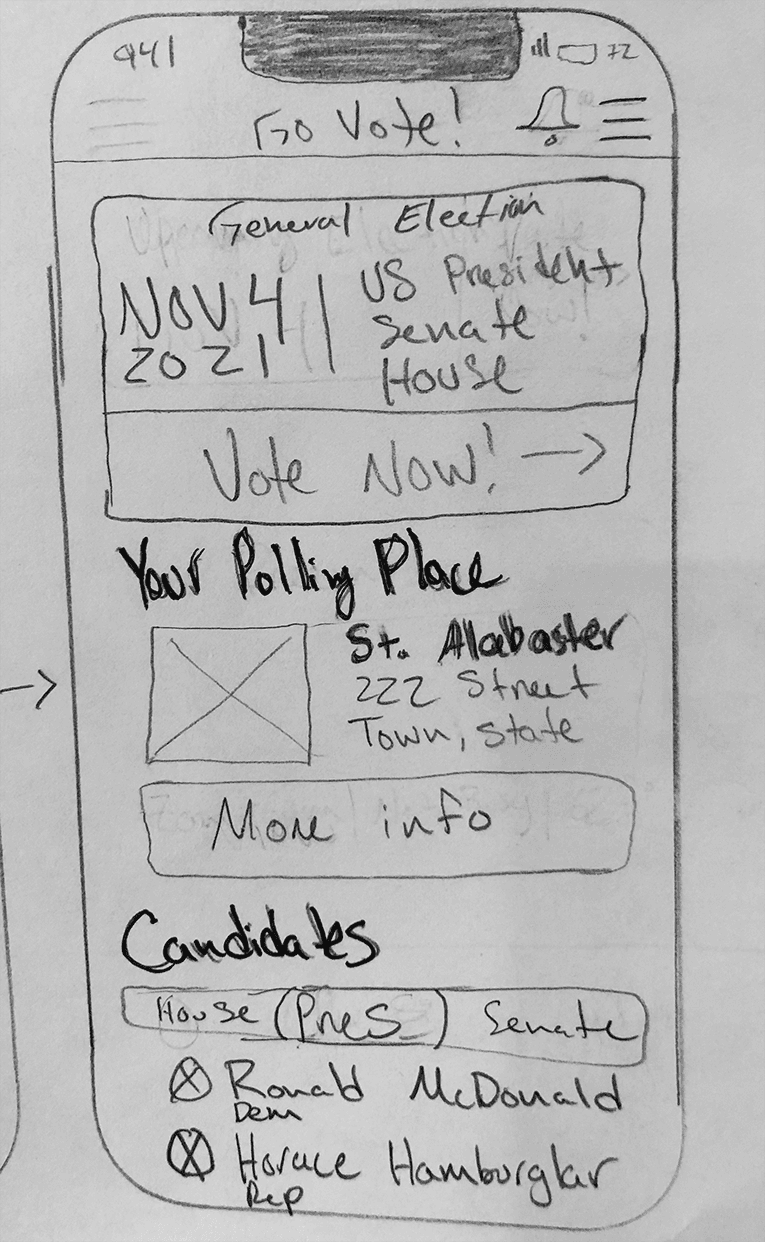 941 72
Go Vote!
General Election
NOV 4 2021
US President
Senate
House
Vote Now! →
Your Polling Place
St. Alabaster
222 Street
Town, State
More info
Candidates
House (Pres) Senate
Ronald McDonald
Dem
Horace Hamburglar
Rep